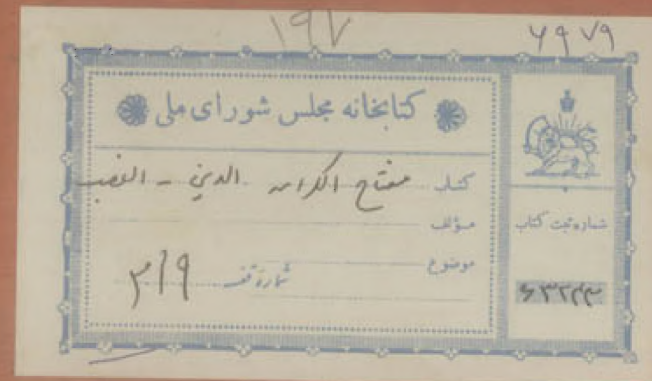 ۱۹۷
۶۹۷۹
کتابخانه مجلس شورای ملی
کتاب مفتاح الکرامه الدین - الغصب
مؤلف
موضوع
شماره قفسه ۳۱۹
شماره ثبت کتاب
۶۳۲۴۳